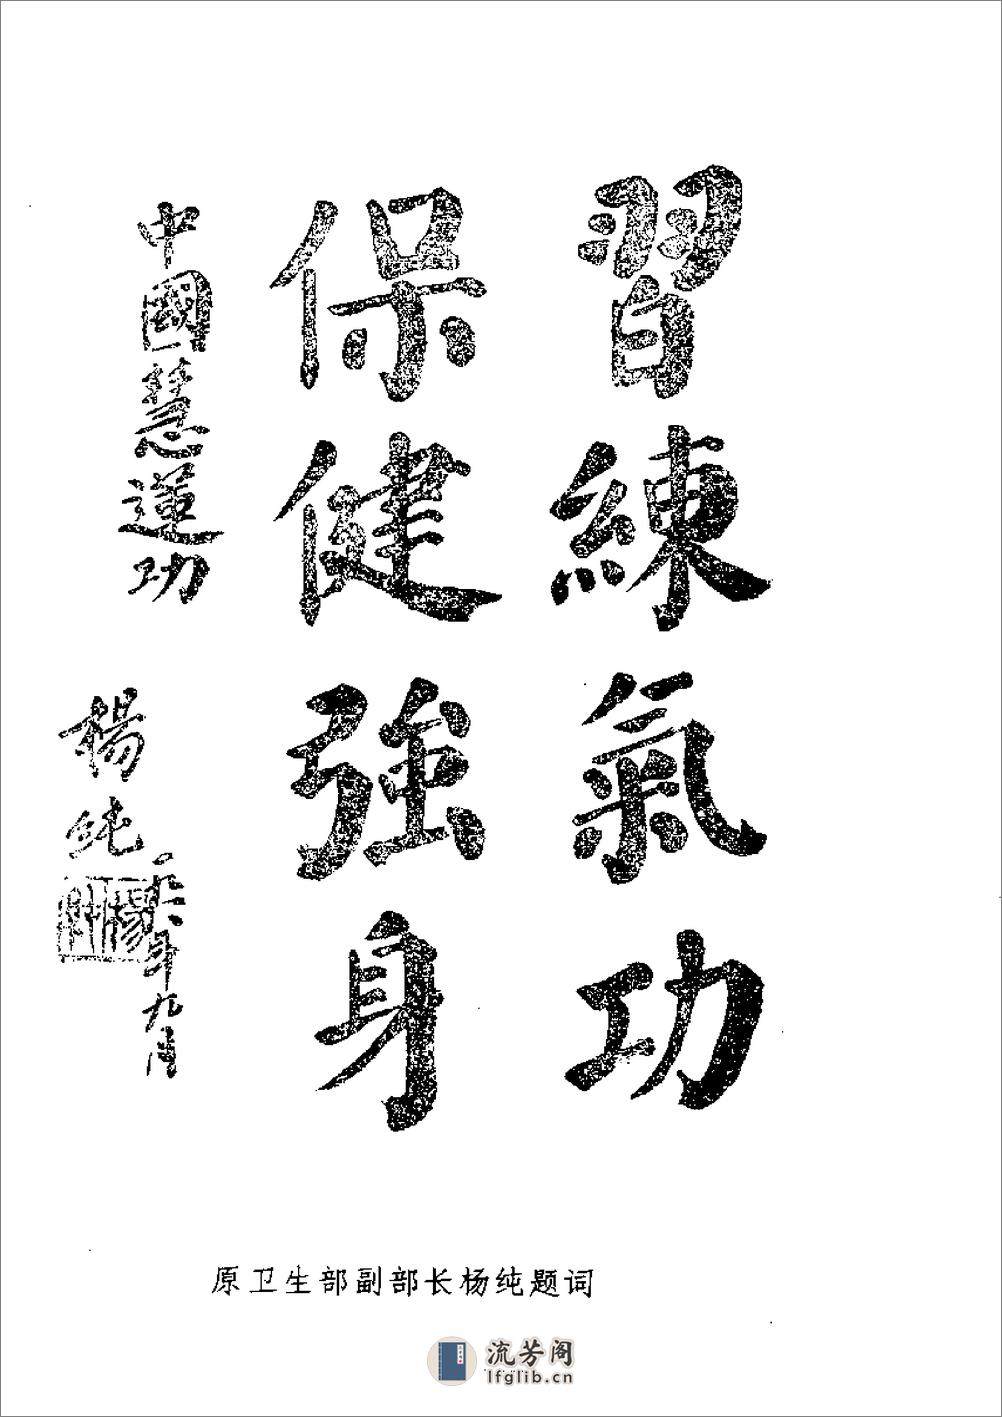 習練氣功
保健強身
中國慧蓮功
楊純
年九月
原卫生部副部长杨纯题词
流芳阁
lfglib.cn